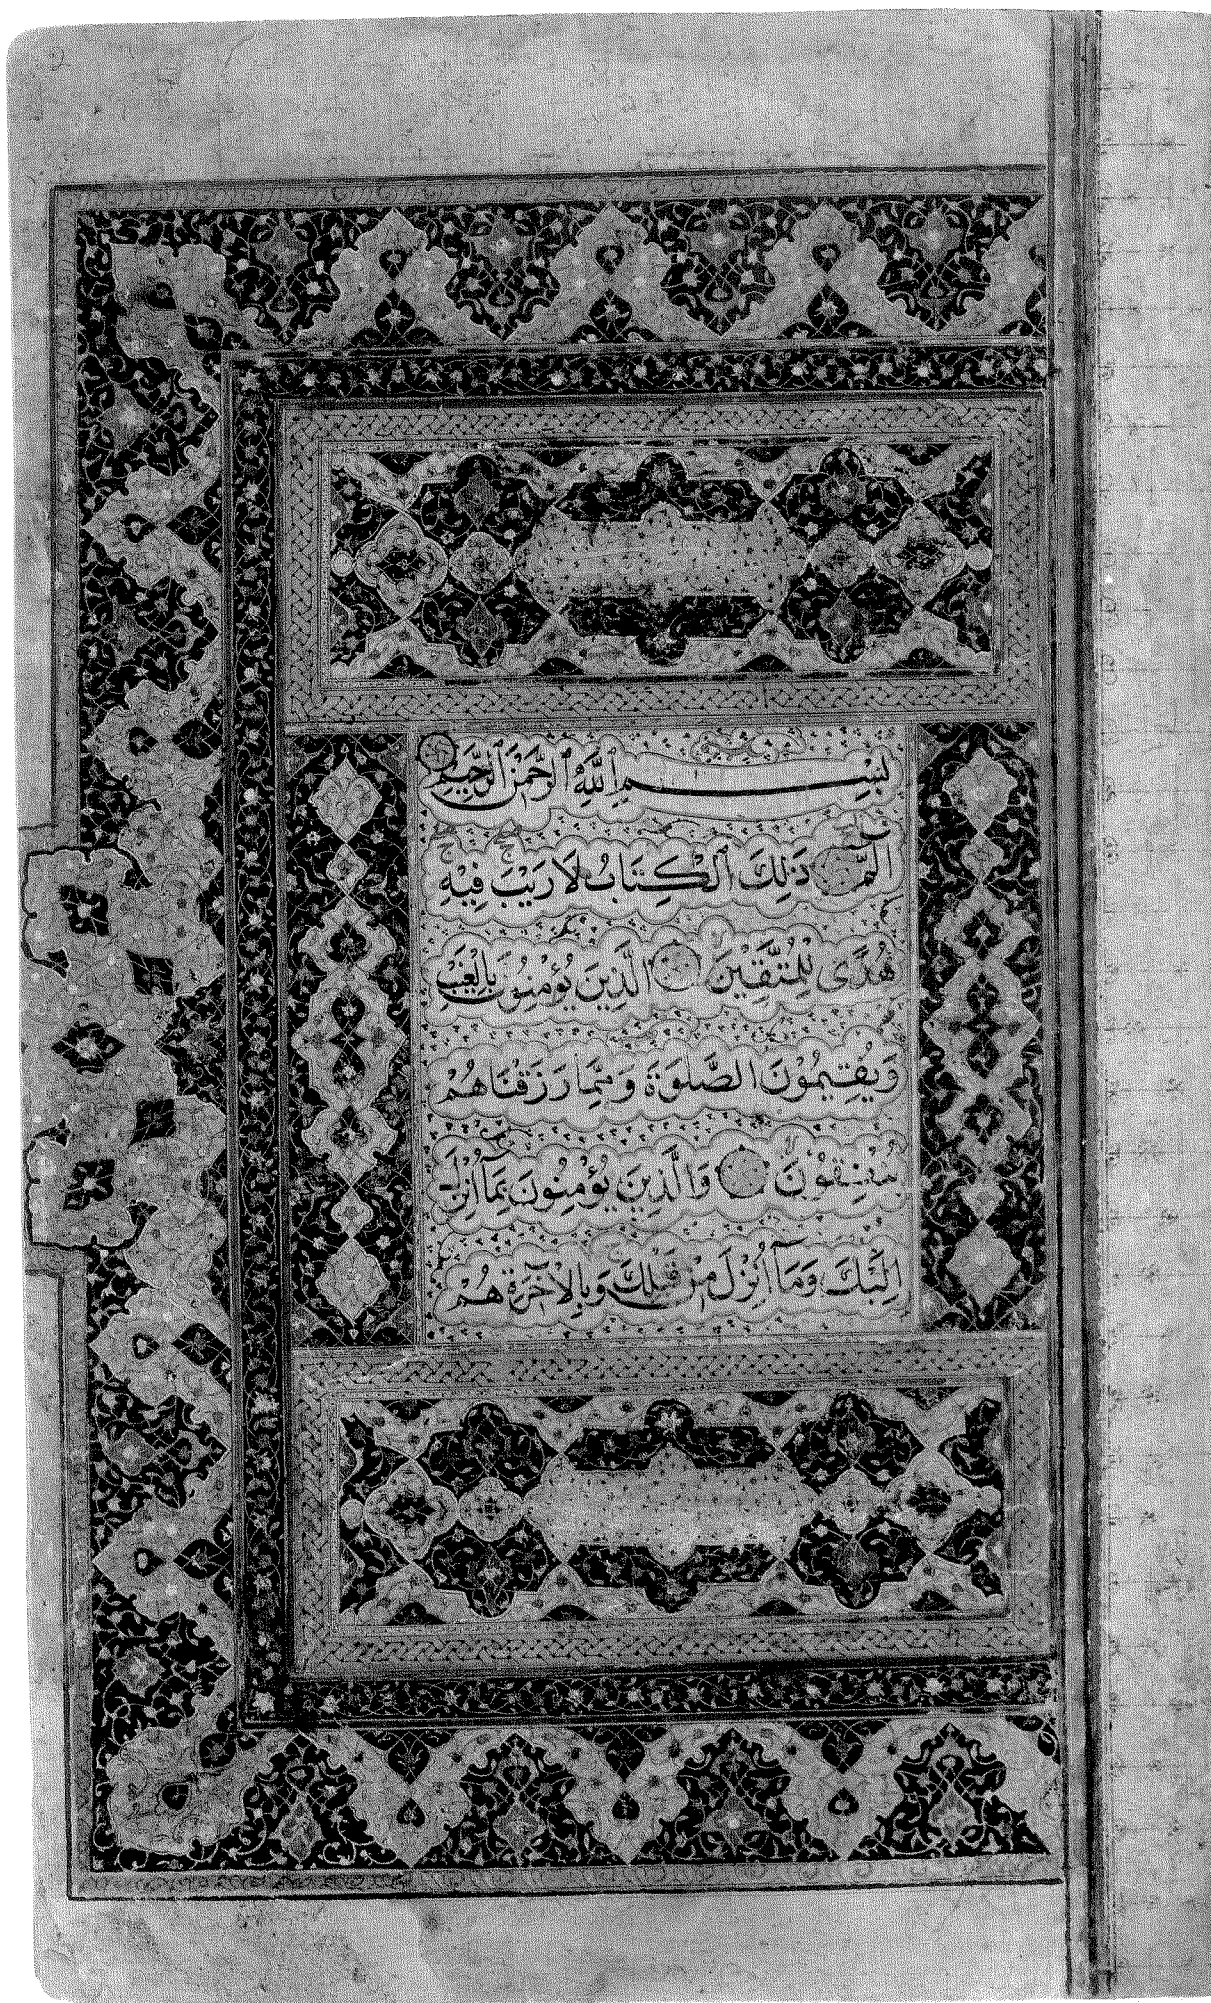 بِسْمِ ٱللَّهِ ٱلرَّحْمَنِ ٱلرَّحِيمِ
الٓمّٓ ذَلِكَ ٱلْكِتَابُ لَا رَيْبَ فِيهِ
هُدًى لِلْمُتَّقِينَ الَّذِينَ يُؤْمِنُونَ بِالْغَيْبِ
وَيُقِيمُونَ الصَّلٰوةَ وَمِمَّا رَزَقْنَاهُمْ
يُنْفِقُونَ وَالَّذِينَ يُؤْمِنُونَ بِمَآ اُنْزِلَ
اِلَيْكَ وَمَآ اُنْزِلَ مِنْ قَبْلِكَ وَبِالْاٰخِرَةِ هُمْ